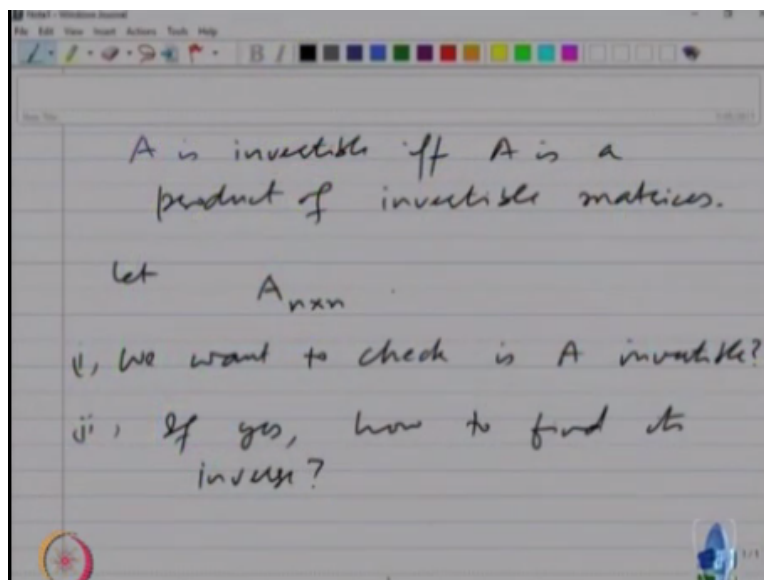 Note1 - Windows Journal
File Edit View Insert Actions Tools Help
B I
A is invertible iff A is a
product of invertible matrices.
Let A n×n
i, We want to check is A invertible?
ii, If yes, how to find its
inverse?
1/1